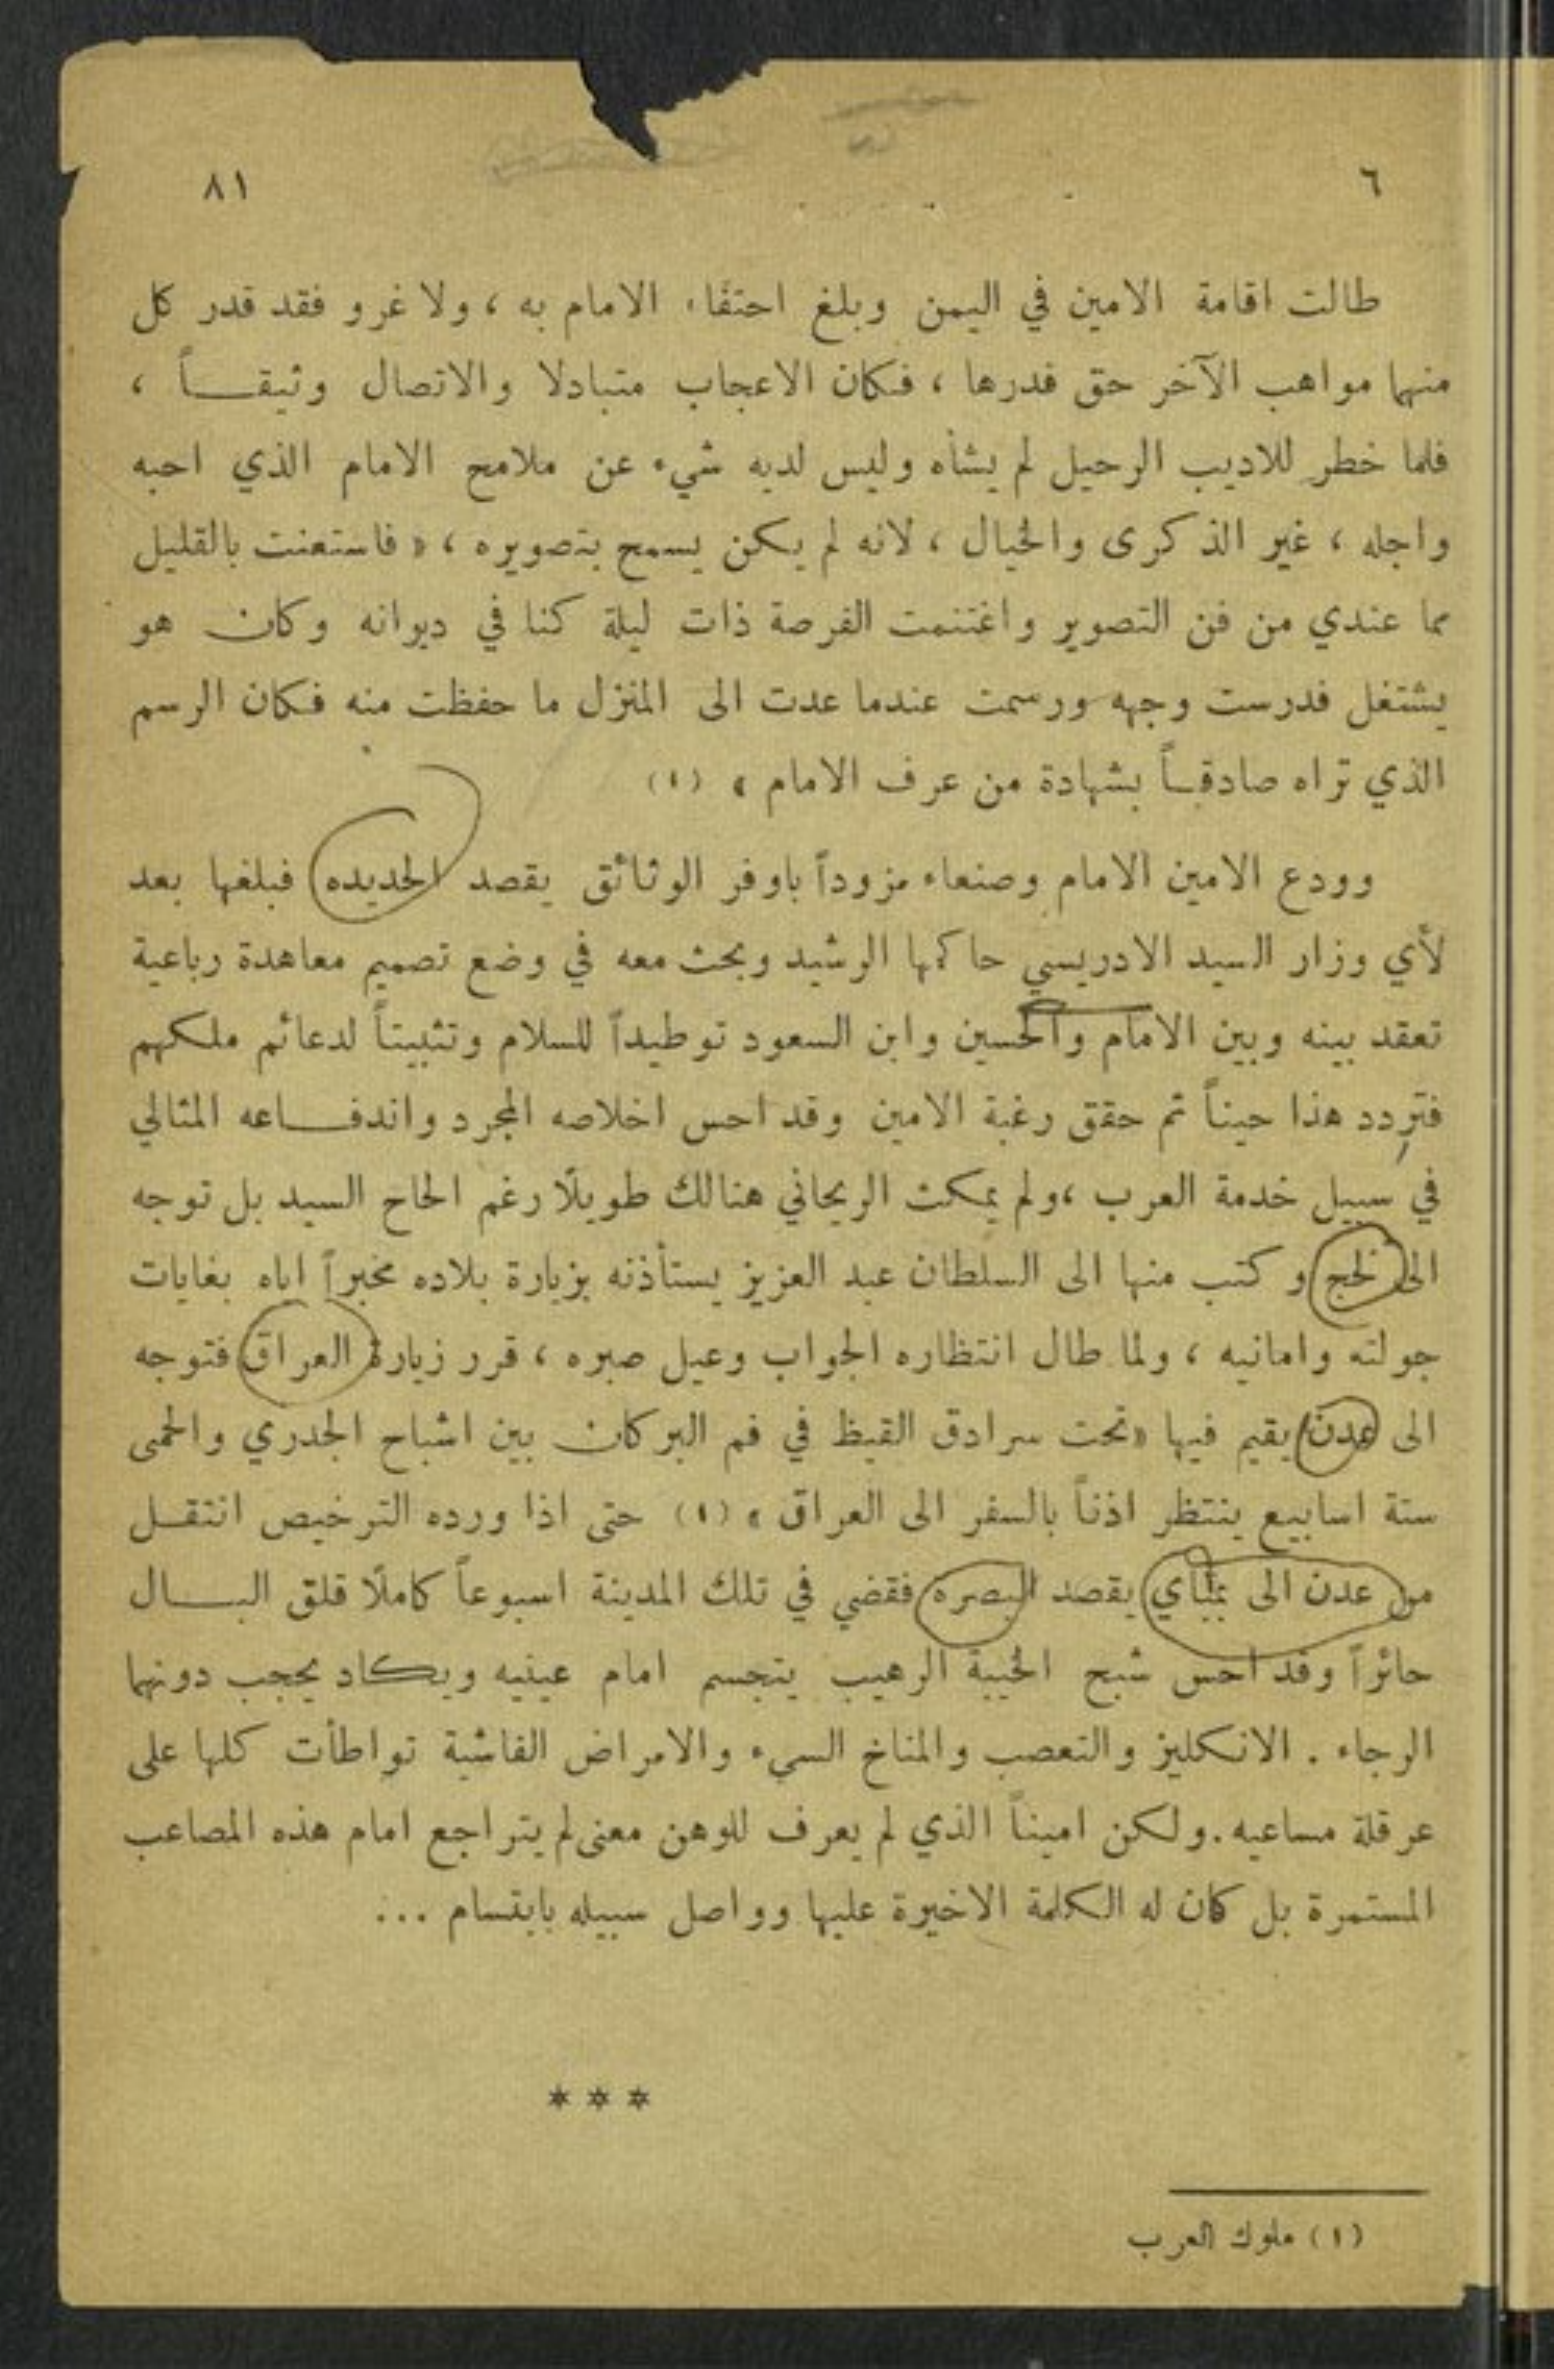 ٦ ٨١
طالت اقامة الامين في اليمن وبلغ احتفاء الامام به ، ولا غرو فقد قدر كل
منهما مواهب الآخر حق قدرها ، فكان الاعجاب متبادلا والاتصال وثيقــاً ،
فلما خطر للاديب الرحيل لم يشأه وليس لديه شيء عن ملامح الامام الذي احبه
واجله ، غير الذكرى والخيال ، لانه لم يكن يسمح بتصويره ، « فاستعنت بالقليل
مما عندي من فن التصوير واغتنمت الفرصة ذات ليلة كنا في ديوانه وكان هو
يشتغل فدرست وجهه ورسمت عندما عدت الى المنزل ما حفظت منه فكان الرسم
الذي تراه صادقــاً بشهادة من عرف الامام » (١)
وودع الامين الامام وصنعاء مزوداً باوفر الوثائق يقصد الحديده فبلغها بعد
لأي وزار السيد الادريسي حاكمها الرشيد وبحث معه في وضع تصميم معاهدة رباعية
تعقد بينه وبين الامام والحسين وابن السعود توطيداً للسلام وتثبيتاً لدعائم ملكهم
فتردد هذا حيناً ثم حقق رغبة الامين وقد احس اخلاصه المجرد واندفــاعه المثالي
في سبيل خدمة العرب ، ولم يمكث الريحاني هنالك طويلًا رغم الحاح السيد بل توجه
الى لحج وكتب منها الى السلطان عبد العزيز يستأذنه بزيارة بلاده مخبراً اياه بغايات
جولته وامانيه ، ولما طال انتظاره الجواب وعيل صبره ، قرر زيارة العراق فتوجه
الى عدن يقيم فيها «تحت سرادق القيظ في فم البركان بين اشباح الجدري والحمى
ستة اسابيع ينتظر اذناً بالسفر الى العراق » (١) حتى اذا ورده الترخيص انتقــل
من عدن الى بمباي يقصد البصره فقضي في تلك المدينة اسبوعاً كاملًا قلق البــال
حائراً وقد احس شبح الخيبة الرهيب يتجسم امام عينيه ويكاد يحجب دونهما
الرجاء . الانكليز والتعصب والمناخ السيء والامراض الفاشية تواطأت كلها على
عرقلة مساعيه . ولكن اميناً الذي لم يعرف للوهن معنى لم يتراجع امام هذه المصاعب
المستمرة بل كان له الكلمة الاخيرة عليها وواصل سبيله بابتسام ...
* * *
(١) ملوك العرب